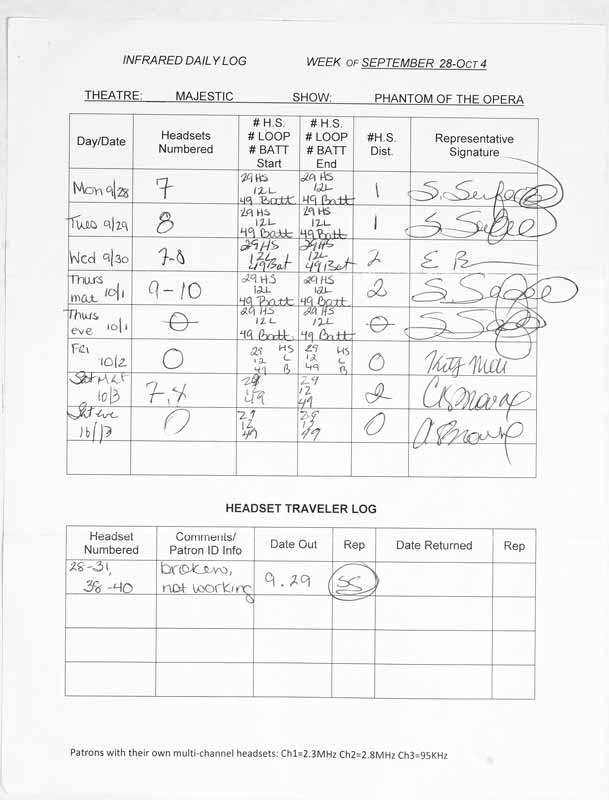 INFRARED DAILY LOG WEEK OF SEPTEMBER 28-OCT 4
THEATRE: MAJESTIC SHOW: PHANTOM OF THE OPERA
Day/Date Headsets Numbered # H.S. # LOOP # BATT Start # H.S. # LOOP # BATT End #H.S. Dist. Representative Signature
Mon 9/28 7 29 HS 12L 49 Batt 29 HS 12L 49 Batt 1
Tues 9/29 8 29 HS 12L 49 Batt 29 HS 12L 49 Batt 1
Wed 9/30 7-8 29 HS 12L 49 Bat 29 HS 12L 49 Bat 2
Thurs mat 10/1 9-10 29 HS 12L 49 Batt 29 HS 12L 49 Batt 2
Thurs eve 10/1 0 29 HS 12L 49 Batt 29 HS 12L 49 Batt 0
Fri 10/2 0 29 HS 12 L 49 B 29 HS 12 L 49 B 0
Sat Mat 10/3 7,8 29 12 49 29 12 49 2
Sat eve 10/3 0 29 12 49 29 12 49 0
HEADSET TRAVELER LOG
Headset Numbered Comments/ Patron ID Info Date Out Rep Date Returned Rep
28-31, 38-40 broken, not working 9.29 SS
Patrons with their own multi-channel headsets: Ch1=2.3MHz Ch2=2.8MHz Ch3=95KHz